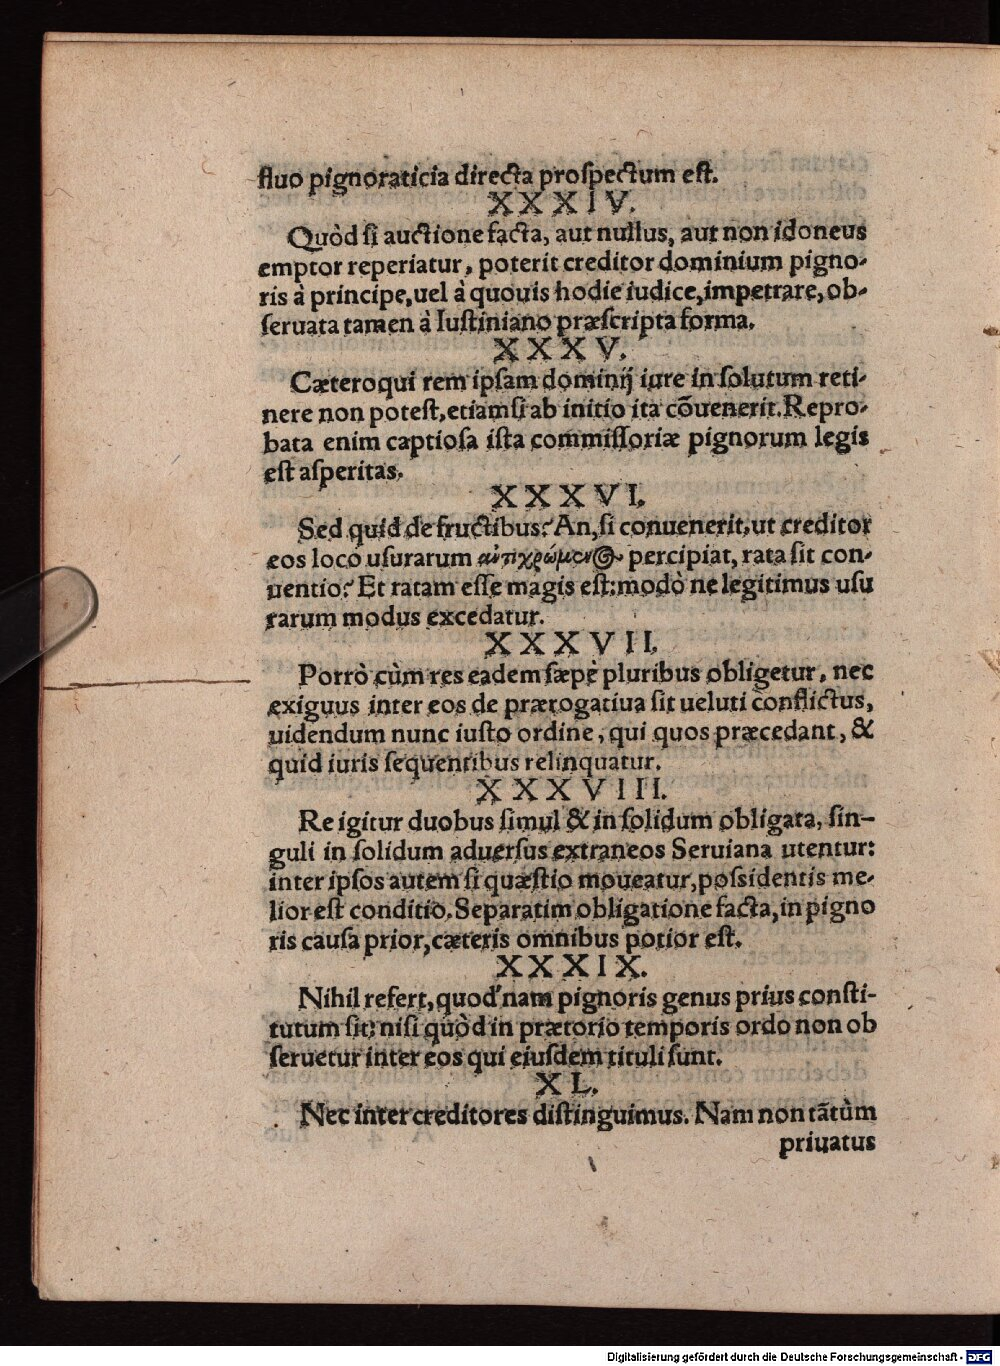 fluo pignoraticia directa prospectum est.
XXXIV.
Quòd si auctione facta, aut nullus, aut non idoneus
emptor reperiatur, poterit creditor dominium pigno-
ris à principe, uel à quouis hodie iudice, impetrare, ob-
seruata tamen à Iustiniano præscripta forma.
XXXV.
Cæteroqui rem ipsam dominij iure in solutum reti-
nere non potest, etiamsi ab initio ita cōuenerit. Repro-
bata enim captiosa ista commissoriæ pignorum legis
est asperitas.
XXXVI.
Sed quid de fructibus? An, si conuenerit, ut creditor
eos loco usurarum percipiat, rata sit con-
uentio? Et ratam esse magis est: modò ne legitimus usu
rarum modus excedatur.
XXXVII.
Porrò cùm res eadem sæpè pluribus obligetur, nec
exiguus inter eos de prærogatiua sit ueluti conflictus,
uidendum nunc iusto ordine, qui quos præcedant, &
quid iuris sequentibus relinquatur.
XXXVIII.
Re igitur duobus simul & in solidum obligata, sin-
guli in solidum aduersus extraneos Seruiana utentur:
inter ipsos autem si quæstio moueatur, possidentis me-
lior est conditio. Separatim obligatione facta, in pigno
ris causa prior, cæteris omnibus potior est.
XXXIX.
Nihil refert, quod'nam pignoris genus prius consti-
tutum sit: nisi quòd in prætorio temporis ordo non ob
seruetur inter eos qui eiusdem tituli sunt.
XL.
Nec inter creditores distinguimus. Nam non tātùm
priuatus
Digitalisierung gefördert durch die Deutsche Forschungsgemeinschaft - DFG